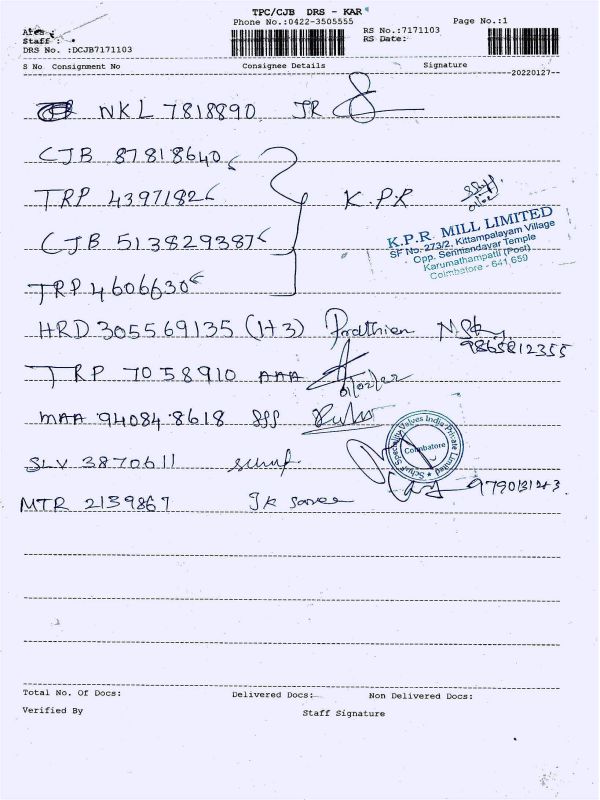 TPC/CJB DRS - KAR
Phone No.:0422-3505555
Page No.:1
Area :
Staff :
DRS No. :DCJB7171103
RS No.:7171103
RS Date:
S No Consignment No Consignee Details Signature
--20220127--
NKL 7818890 JR
CJB 87818640
TRP 4397182 K.P.R
CJB 513829387
K.P.R. MILL LIMITED
SF No. 273/2, Kittampalayam Village
Opp. Senniandavar Temple
Karumathampatti (Post)
Coimbatore - 641 659
TRP 4606630
HRD 305569135 (1+3) Prathien
9865812355
TRP 7058910 AAA
01/02/22
MAA 940848618 SSS
Schuf Speciality Valves India Private Limited
Coimbatore
SLV 3870611 schuf
MTR 2139867 JK
Total No. Of Docs: Delivered Docs: Non Delivered Docs:
Verified By Staff Signature